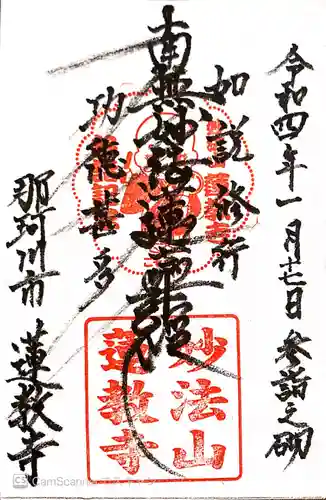 令和四年一月十七日 参詣之砌
如説修行
南無妙法蓮華経
功徳甚多
那珂川市 蓮教寺
妙法山
蓮教寺
CS CamScanner